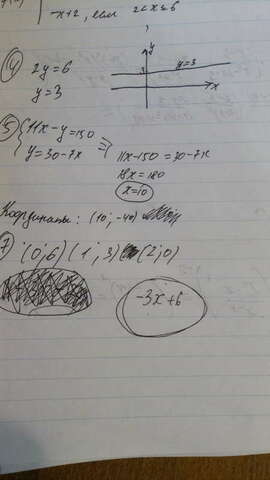 -x+2, если 2<x≤6
4) 2y=6
y=3
y
y=3
x
5) {11x-y=150
y=30-7x
11x-150=30-7x
18x=180
x=10
Координаты: (10; -40)
7) (0;6) (1;3) (2;0)
-3x+6